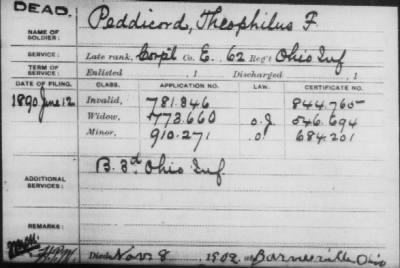 DEAD.
NAME OF SOLDIER: Peddicord, Theophilus F.
SERVICE: Late rank, Corp'l Co. E. , 62 Reg't Ohio Inf
TERM OF SERVICE: Enlisted , 1 Discharged , 1
DATE OF FILING. CLASS. APPLICATION NO. LAW. CERTIFICATE NO.
1890 June 12 Invalid, 781.846 844.760
Widow, 773.660 546.694
Minor, 910.271 684.201
ADDITIONAL SERVICES: B. 3d Ohio Inf.
REMARKS:
Died Nov. 8 , 1902, at Barnesville Ohio